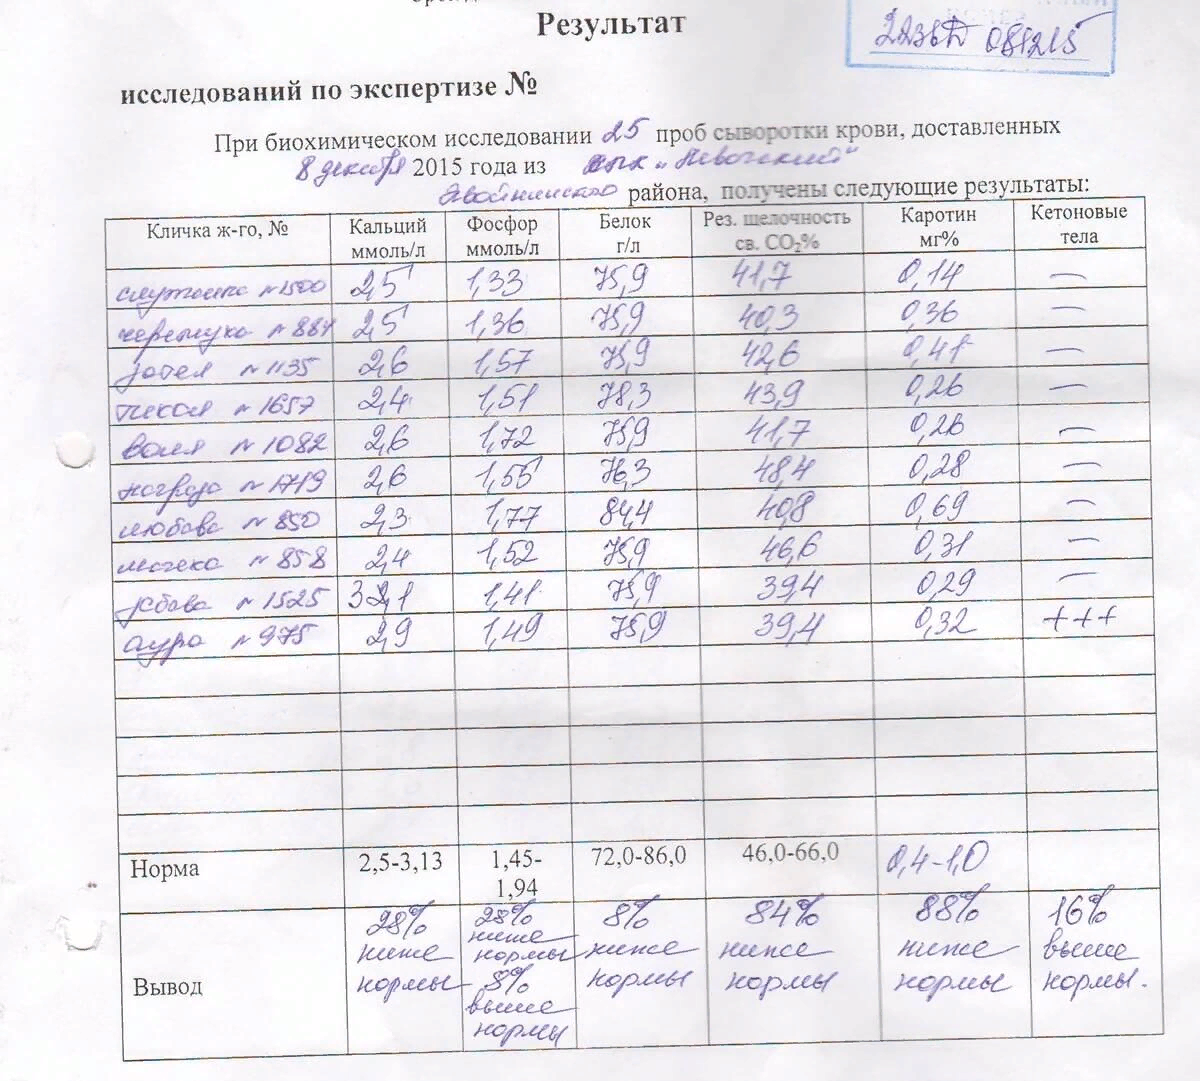 Результат
223БД 081215
исследований по экспертизе №
При биохимическом исследовании 25 проб сыворотки крови, доставленных
8 декабря 2015 года из
района, получены следующие результаты:
Кличка ж-го, № Кальций ммоль/л Фосфор ммоль/л Белок г/л Рез. щелочность св. CO₂% Каротин мг% Кетоновые тела
№1500 2,5 1,33 75,9 41,7 0,14 —
черемуха №884 2,5 1,36 75,9 40,3 0,36 —
№1135 2,6 1,57 75,9 42,6 0,41 —
№1657 2,4 1,51 78,3 43,9 0,26 —
воля №1082 2,6 1,72 75,9 41,7 0,26 —
награда №1719 2,6 1,55 76,3 48,4 0,28 —
любава №850 2,3 1,77 84,4 40,8 0,69 —
№858 2,4 1,52 75,9 46,6 0,31 —
№1525 1,41 75,9 39,4 0,29 —
аура №975 2,9 1,49 75,9 39,4 0,32 +++
Норма 2,5-3,13 1,45-1,94 72,0-86,0 46,0-66,0 0,4-1,0
Вывод 28% ниже нормы 28% ниже нормы 8% выше нормы 8% ниже нормы 84% ниже нормы 88% ниже нормы 16% выше нормы.